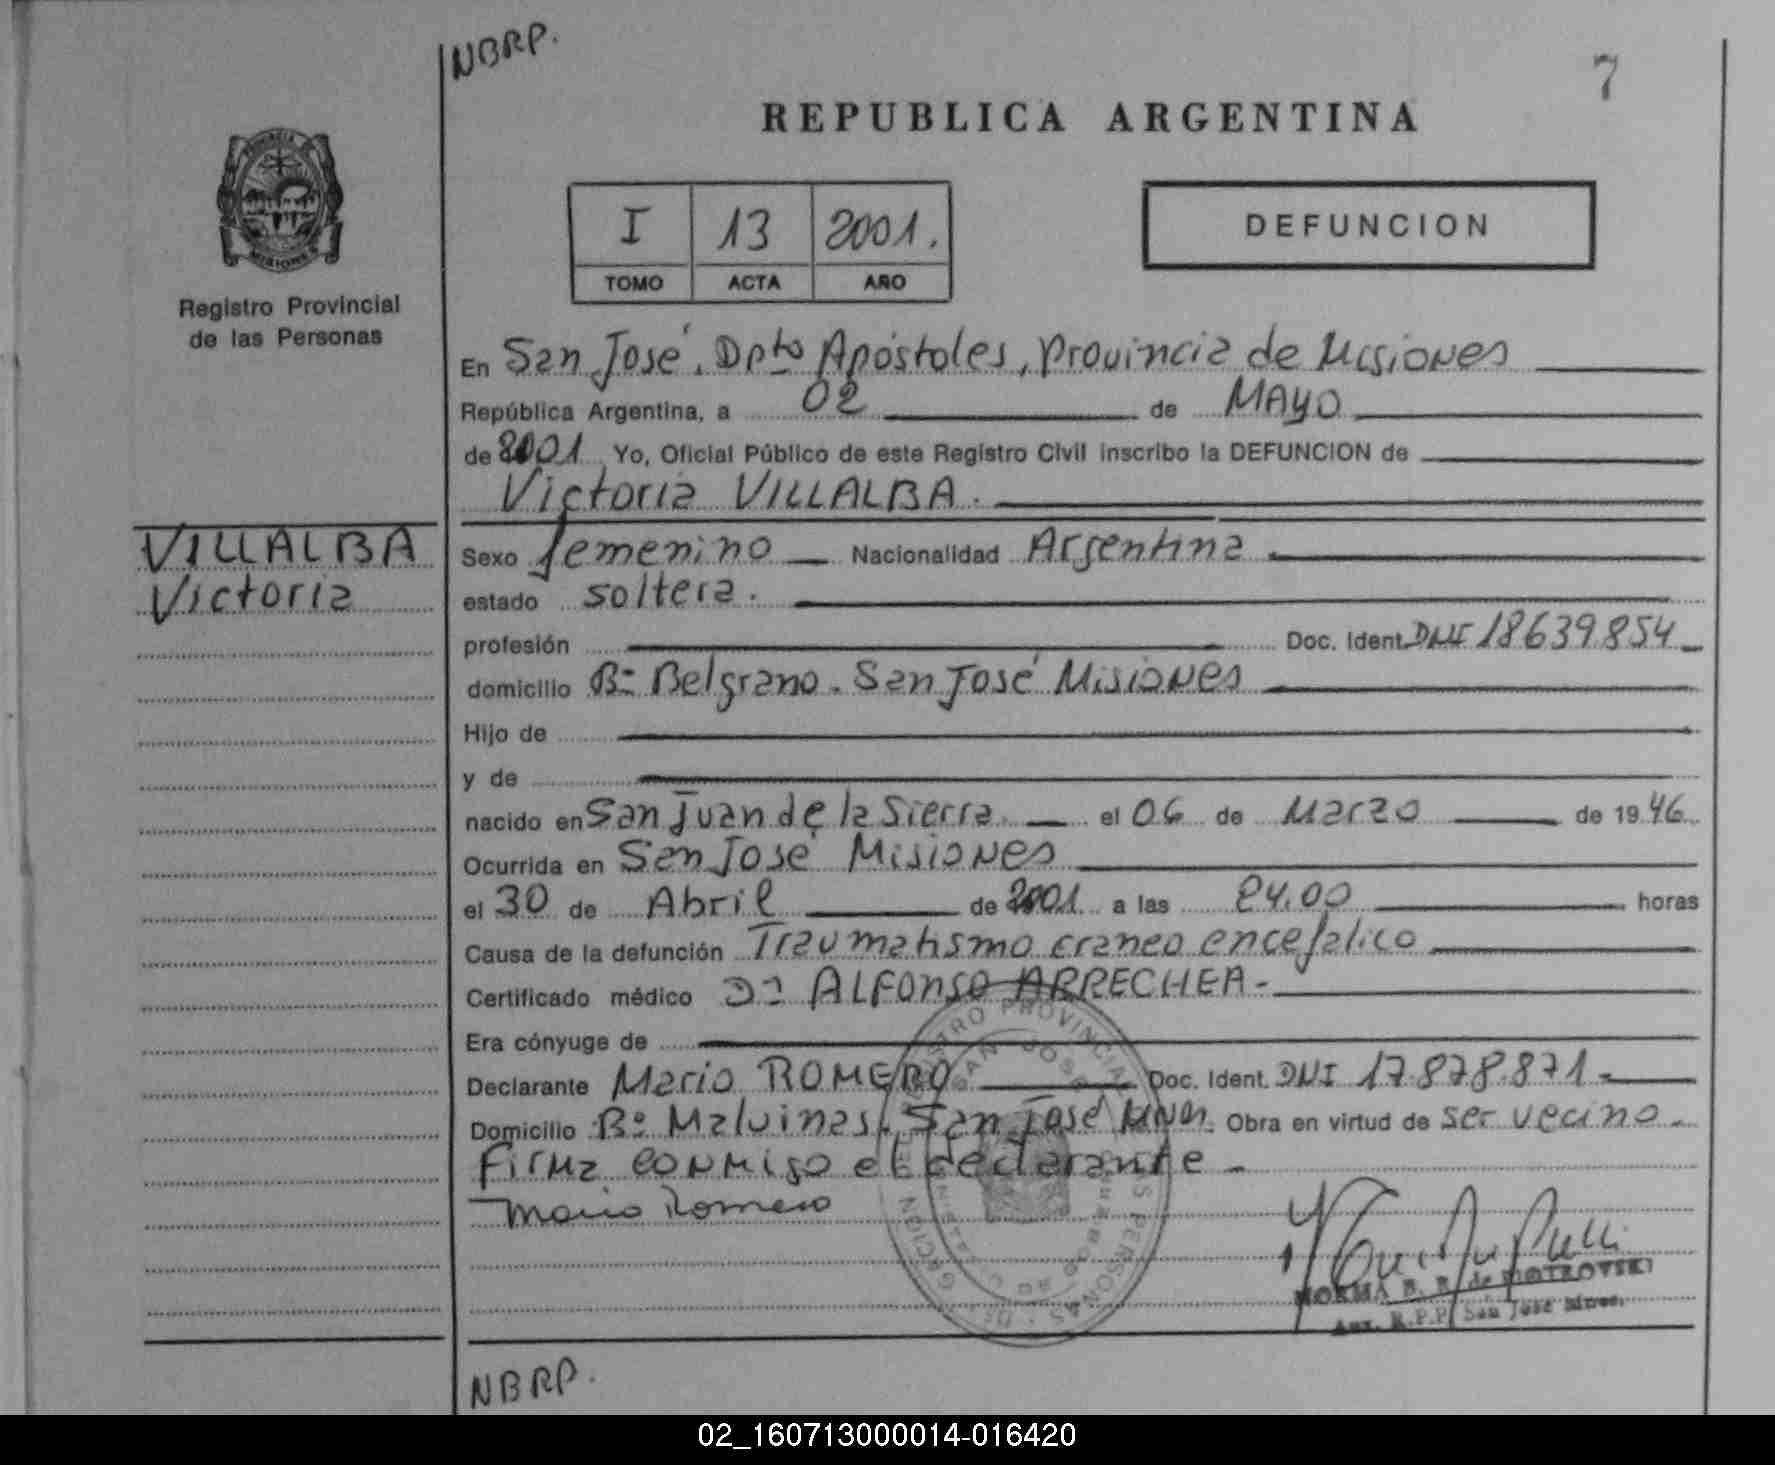 NBRP.
7
REPUBLICA ARGENTINA
I 13 2001.
TOMO ACTA AÑO
DEFUNCION
PROVINCIA DE
MISIONES
Registro Provincial
de las Personas
En San José, Dpto Apóstoles, Provincia de Misiones
República Argentina, a 02 de MAYO
de 2001 Yo, Oficial Público de este Registro Civil inscribo la DEFUNCION de
Victoria VILLALBA.
VILLALBA
Victoria
Sexo femenino Nacionalidad Argentina
estado soltera.
profesión Doc. Ident. DNI 18639854
domicilio Bº Belgrano. San José Misiones
Hijo de
y de
nacido en San Juan de la Sierra el 06 de Marzo de 1946
Ocurrida en San José Misiones
el 30 de Abril de 2001 a las 24.00 horas
Causa de la defunción Traumatismo craneo encefalico
Certificado médico Dr ALFONSO ARRECHEA-
Era cónyuge de
Declarante Mario ROMERO Doc. Ident. DNI 17.878.871-
Domicilio Bº Malvinas, San José Mnes. Obra en virtud de ser vecino-
Firma conmigo el declarante-
Mario Romero
REGISTRO PROVINCIAL DE LAS PERSONAS
SAN JOSE
NORMA B. R. de PIOTROVSKI
Aux. R.P.P. San José Mnes.
NBRP.
02_160713000014-016420